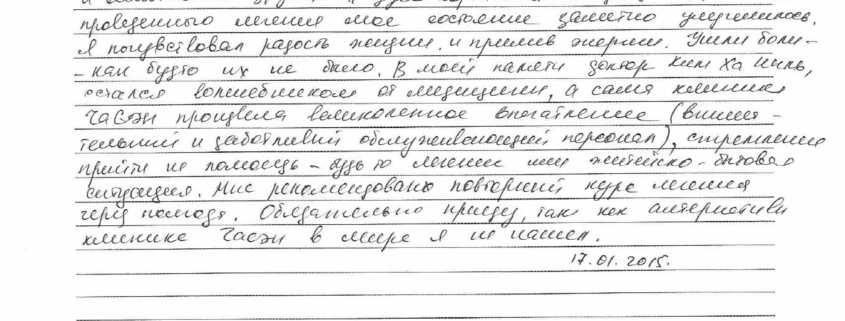 проведенного лечения мое состояние заметно улучшилось.
Я почувствовал радость жизни и прилив энергии. Ушли боли -
- как будто их не было. В моей памяти доктор Ким Ха Ниль,
остался волшебником от медицины, а сама клиника
Часэн произвела великолепное впечатление (внима-
тельный и заботливый обслуживающий персонал), стремление
прийти на помощь - будь то лечение или житейско-бытовая
ситуация. Мне рекомендован повторный курс лечения
через полгода. Обязательно приеду, так как альтернативы
клинике Часэн в мире я не нашел.
17.01.2015.